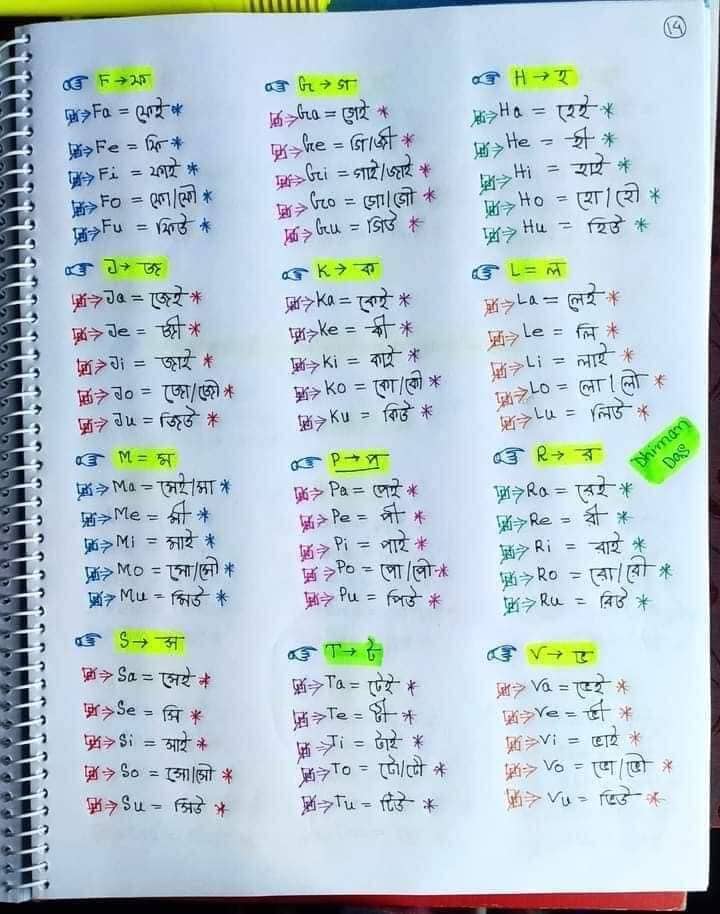 14
F → ফ
Fa = ফেই *
Fe = ফি *
Fi = ফাই *
Fo = ফো/ফৌ *
Fu = ফিউ *
G → গ
Ga = গেই *
Ge = জি/জী *
Gi = গাই/জাই *
Go = গো/জৌ *
Gu = জিউ *
H → হ
Ha = হেই *
He = হী *
Hi = হাই *
Ho = হো/হৌ *
Hu = হিউ *
J → জ
Ja = জেই *
Je = জী *
Ji = জাই *
Jo = জো/জৌ *
Ju = জিউ *
K → ক
Ka = কেই *
Ke = কী *
Ki = কাই *
Ko = কো/কৌ *
Ku = কিউ *
L = ল
La = লেই *
Le = লি *
Li = লাই *
Lo = লো/লৌ *
Lu = লিউ *
M = ম
Ma = মেই/মা *
Me = মী *
Mi = মাই *
Mo = মো/মৌ *
Mu = মিউ *
P → প
Pa = পেই *
Pe = পী *
Pi = পাই *
Po = পো/পৌ *
Pu = পিউ *
Dhiman
Das
R → র
Ra = রেই *
Re = রী *
Ri = রাই *
Ro = রো/রৌ *
Ru = রিউ *
S → স
Sa = সেই *
Se = সি *
Si = সাই *
So = সো/সৌ *
Su = সিউ *
T → ট
Ta = টেই *
Te = টী *
Ti = টাই *
To = টো/টৌ *
Tu = টিউ *
V → ভ
Va = ভেই *
Ve = ভী *
Vi = ভাই *
Vo = ভো/ভৌ *
Vu = ভিউ *